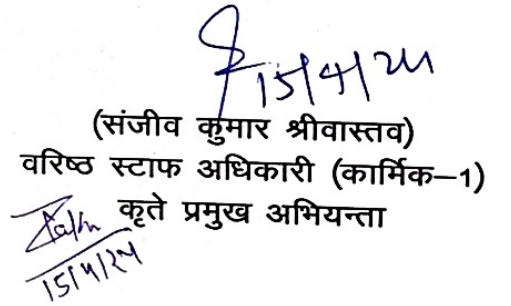 15/4/24
(संजीव कुमार श्रीवास्तव)
वरिष्ठ स्टाफ अधिकारी (कार्मिक–1)
कृते प्रमुख अभियन्ता
15/4/24